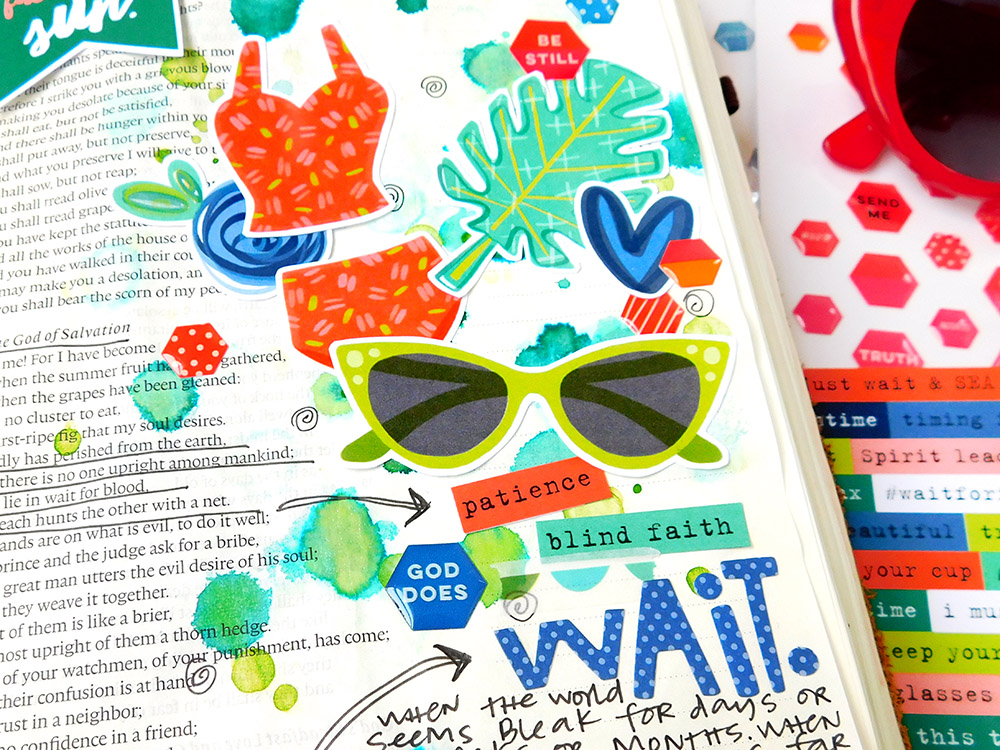 sun.
BE
STILL
nts?
ants speak
their tongue is deceitful in their mou
erefore I strike you with a grievous blow
making you desolate because of your si
shall eat, but not be satisfied,
and there shall be hunger within yo
shall put away, but not preserve,
nd what you preserve I will give to t
shall sow, but not reap;
u shall tread olive
u shall tread grape
ou have kept the statut
d all the works of the house o
d you have walked in their cou
may make you a desolation, an
ou shall bear the scorn of my pe
he God of Salvation
me! For I have become
when the summer fruit ha gathered,
when the grapes have been gleaned:
no cluster to eat,
rst-ripe fig that my soul desires.
dly has perished from the earth,
there is no one upright among mankind;
lie in wait for blood,
each hunts the other with a net.
ands are on what is evil, to do it well;
prince and the judge ask for a bribe,
great man utters the evil desire of his soul;
they weave it together.
t of them is like a brier,
most upright of them a thorn hedge.
of your watchmen, of your punishment, has come;
their confusion is at hand
rust in a neighbor;
no confidence in a friend;
patience
blind faith
GOD
DOES
WAiT.
WHEN THE WORLD
SEEMS BLEAK FOR DAYS OR
OR MONTHS. WHEN
FAR
SEND
ME
TRUTH
just wait & SEA
time timing
Spirit lead
#waitfor
beautiful
your cup
time i mu
keep your
glasses
this t